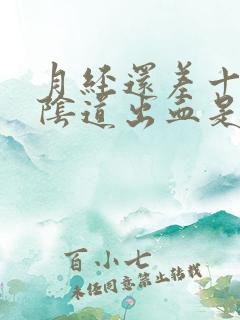 月经还差十
阴道出血是
百小七
未经同意禁止转载